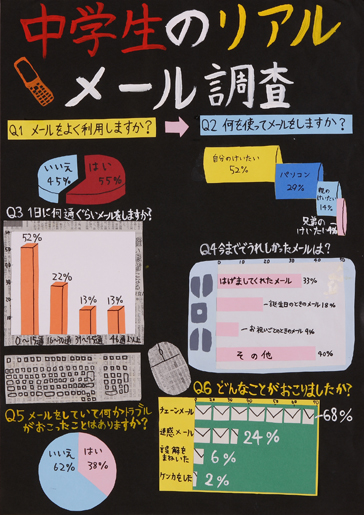 中学生のリアル
メール調査
Q1 メールをよく利用しますか？
いいえ
45%
はい
55%
Q2 何を使ってメールをしますか？
自分のけいたい
52%
パソコン
29%
親の
けいたい
14%
兄弟の
けいたい
Q3 1日に何通ぐらいメールをしますか？
52%
22%
13%
13%
0〜15通
16〜30通
31〜45通
46通以上
Q4 今まででうれしかったメールは？
0
10
20
30
40
はげましてくれたメール 33%
誕生日のときのメール 18%
お祝いごとのときのメール 9%
その他 40%
Q5 メールをしていて何かトラブル
がおこったことはありますか？
いいえ
62%
はい
38%
Q6 どんなことがおこりましたか？
チェーンメール 68%
迷惑メール 24%
誤解を
まねいた 6%
ケンカをした 2%